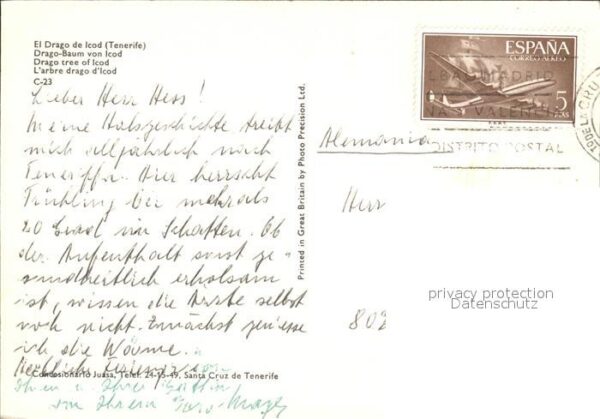 El Drago de Icod (Tenerife)
Drago-Baum von Icod
Drago tree of Icod
L'arbre drago d'Icod
C-23
Lieber Herr Hess!
Meine Halsgeschichte treibt
mich alljährlich nach
Teneriffa. Hier herrscht
Frühling bei mehr als
20 Grad im Schatten. Ob
der Aufenthalt sonst ge-
sundheitlich erholsam
ist, wissen die Ärzte selbst
noch nicht. Zunächst geniesse
ich die Wärme.
Herzliche
Concesionario Juasa, Telef. 24-15-49, Santa Cruz de Tenerife
Ihnen u. Ihrer Gattin
von Ihrem
Printed in Great Britain by Photo Precision Ltd.
ESPAÑA
CORREO AEREO
5
PTAS
MADRID
DISTRITO POSTAL
DE LA CRUZ
Alemania
Herr
privacy protection
Datenschutz
802